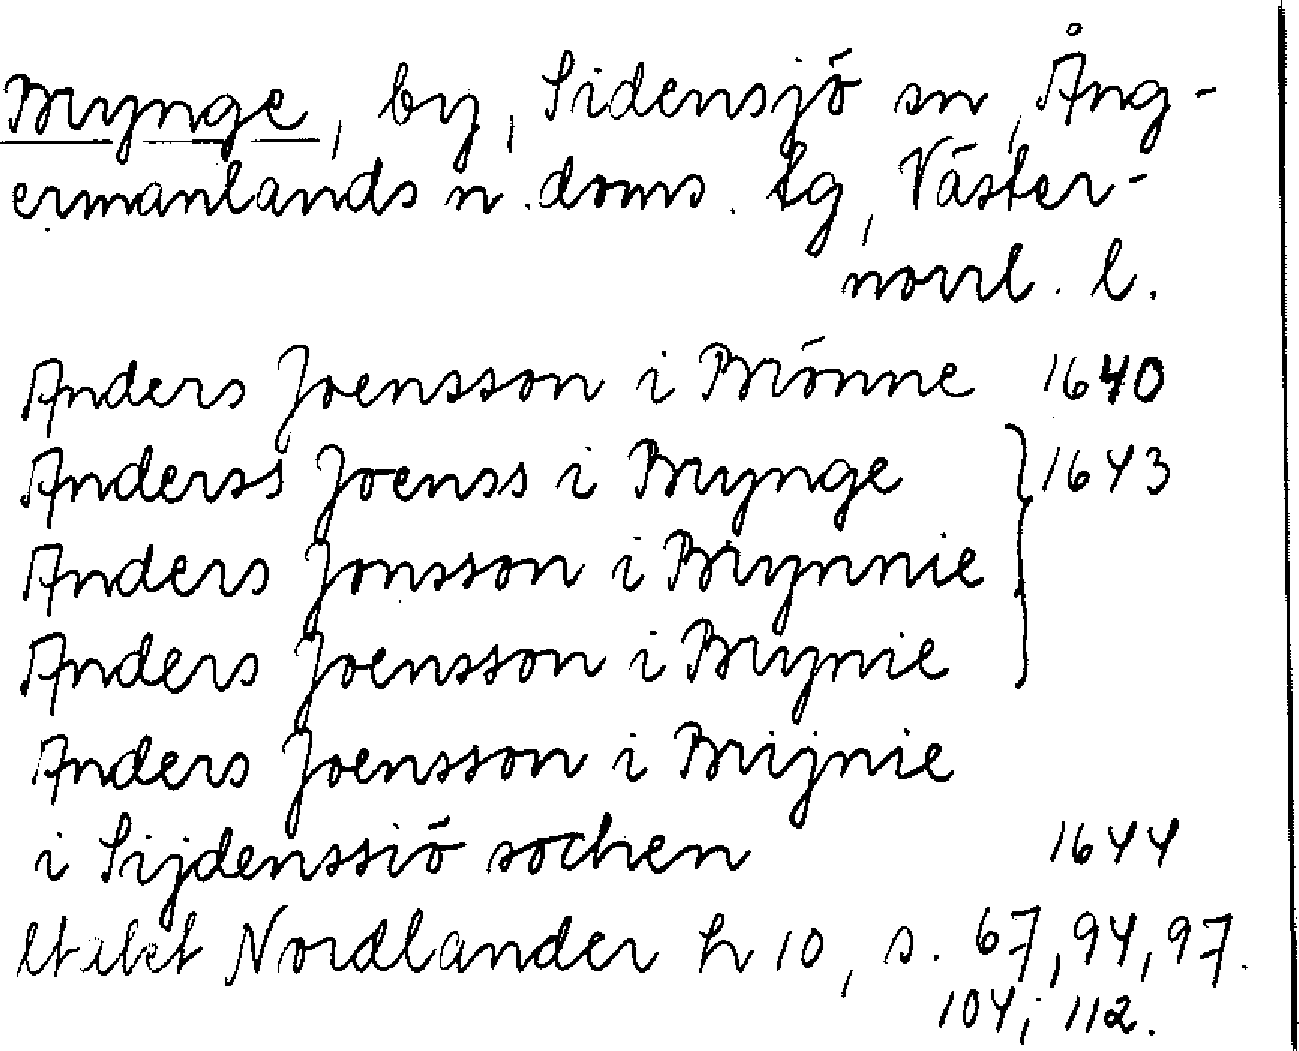 Brynge, by, Sidensjö sn, Ång-
ermanlands n. doms. tg, Väster-
norrl. l.
Anders Joensson i Brönne 1640
Anderss Joenss i Brynge } 1643
Anders Jonsson i Brynnie
Anders Joensson i Brynie
Anders Joensson i Brijnie
i Sijdenssiö sochen 1644
Nordlander h 10, s. 67, 94, 97.
104, 112.